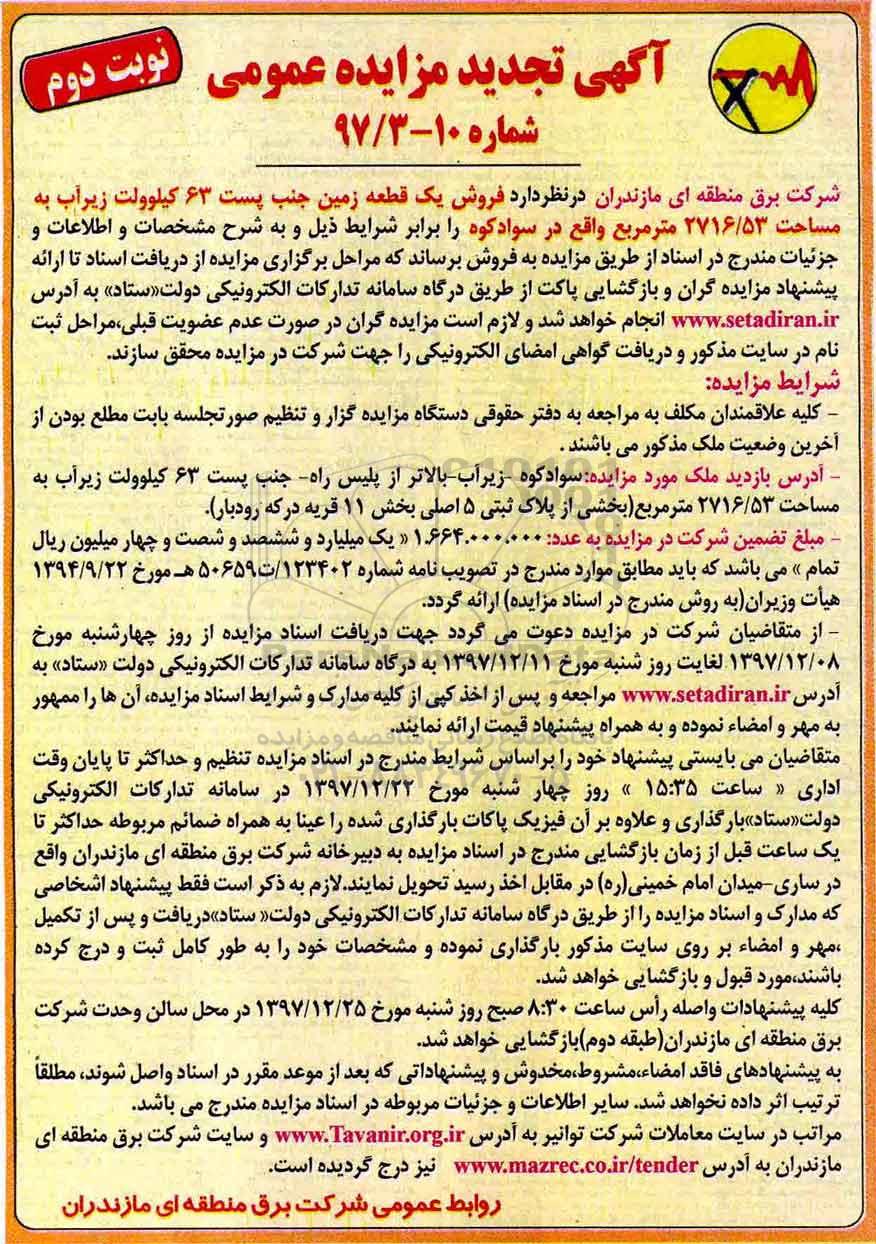 نوبت دوم
آگهی تجدید مزایده عمومی
شماره ۱۰-۹۷/۳
شرکت برق منطقه ای مازندران درنظردارد فروش یک قطعه زمین جنب پست ۶۳ کیلوولت زیرآب به
مساحت ۲۷۱۶/۵۳ مترمربع واقع در سوادکوه را برابر شرایط ذیل و به شرح مشخصات و اطلاعات و
جزئیات مندرج در اسناد از طریق مزایده به فروش برساند که مراحل برگزاری مزایده از دریافت اسناد تا ارائه
پیشنهاد مزایده گران و بازگشایی پاکت از طریق درگاه سامانه تدارکات الکترونیکی دولت«ستاد» به آدرس
www.setadiran.ir انجام خواهد شد و لازم است مزایده گران در صورت عدم عضویت قبلی،مراحل ثبت
نام در سایت مذکور و دریافت گواهی امضای الکترونیکی را جهت شرکت در مزایده محقق سازند.
شرایط مزایده:
- کلیه علاقمندان مکلف به مراجعه به دفتر حقوقی دستگاه مزایده گزار و تنظیم صورتجلسه بابت مطلع بودن از
آخرین وضعیت ملک مذکور می باشند .
- آدرس بازدید ملک مورد مزایده:سوادکوه -زیرآب-بالاتر از پلیس راه- جنب پست ۶۳ کیلوولت زیرآب به
مساحت ۲۷۱۶/۵۳ مترمربع(بخشی از پلاک ثبتی ۵ اصلی بخش ۱۱ قریه درکه رودبار).
- مبلغ تضمین شرکت در مزایده به عدد: ۱.۶۶۴.۰۰۰.۰۰۰ « یک میلیارد و ششصد و شصت و چهار میلیون ریال
تمام » می باشد که باید مطابق موارد مندرج در تصویب نامه شماره ۱۲۳۴۰۲/ت۵۰۶۵۹ هـ مورخ ۱۳۹۴/۹/۲۲
هیأت وزیران(به روش مندرج در اسناد مزایده) ارائه گردد.
- از متقاضیان شرکت در مزایده دعوت می گردد جهت دریافت اسناد مزایده از روز چهارشنبه مورخ
۱۳۹۷/۱۲/۰۸ لغایت روز شنبه مورخ ۱۳۹۷/۱۲/۱۱ به درگاه سامانه تدارکات الکترونیکی دولت «ستاد» به
آدرس www.setadiran.ir مراجعه و پس از اخذ کپی از کلیه مدارک و شرایط اسناد مزایده، آن ها را ممهور
به مهر و امضاء نموده و به همراه پیشنهاد قیمت ارائه نمایند.
متقاضیان می بایستی پیشنهاد خود را براساس شرایط مندرج در اسناد مزایده تنظیم و حداکثر تا پایان وقت
اداری « ساعت ۱۵:۳۵ » روز چهار شنبه مورخ ۱۳۹۷/۱۲/۲۲ در سامانه تدارکات الکترونیکی
دولت«ستاد»بارگذاری و علاوه بر آن فیزیک پاکات بارگذاری شده را عینا به همراه ضمائم مربوطه حداکثر تا
یک ساعت قبل از زمان بازگشایی مندرج در اسناد مزایده به دبیرخانه شرکت برق منطقه ای مازندران واقع
در ساری-میدان امام خمینی(ره) در مقابل اخذ رسید تحویل نمایند.لازم به ذکر است فقط پیشنهاد اشخاصی
که مدارک و اسناد مزایده را از طریق درگاه سامانه تدارکات الکترونیکی دولت« ستاد»دریافت و پس از تکمیل
،مهر و امضاء بر روی سایت مذکور بارگذاری نموده و مشخصات خود را به طور کامل ثبت و درج کرده
باشند،مورد قبول و بازگشایی خواهد شد.
کلیه پیشنهادات واصله رأس ساعت ۸:۳۰ صبح روز شنبه مورخ ۱۳۹۷/۱۲/۲۵ در محل سالن وحدت شرکت
برق منطقه ای مازندران(طبقه دوم)بازگشایی خواهد شد.
به پیشنهادهای فاقد امضاء،مشروط،مخدوش و پیشنهاداتی که بعد از موعد مقرر در اسناد واصل شوند، مطلقاً
ترتیب اثر داده نخواهد شد. سایر اطلاعات و جزئیات مربوطه در اسناد مزایده مندرج می باشد.
مراتب در سایت معاملات شرکت توانیر به آدرس www.Tavanir.org.ir و سایت شرکت برق منطقه ای
مازندران به آدرس www.mazrec.co.ir/tender نیز درج گردیده است.
روابط عمومی شرکت برق منطقه ای مازندران